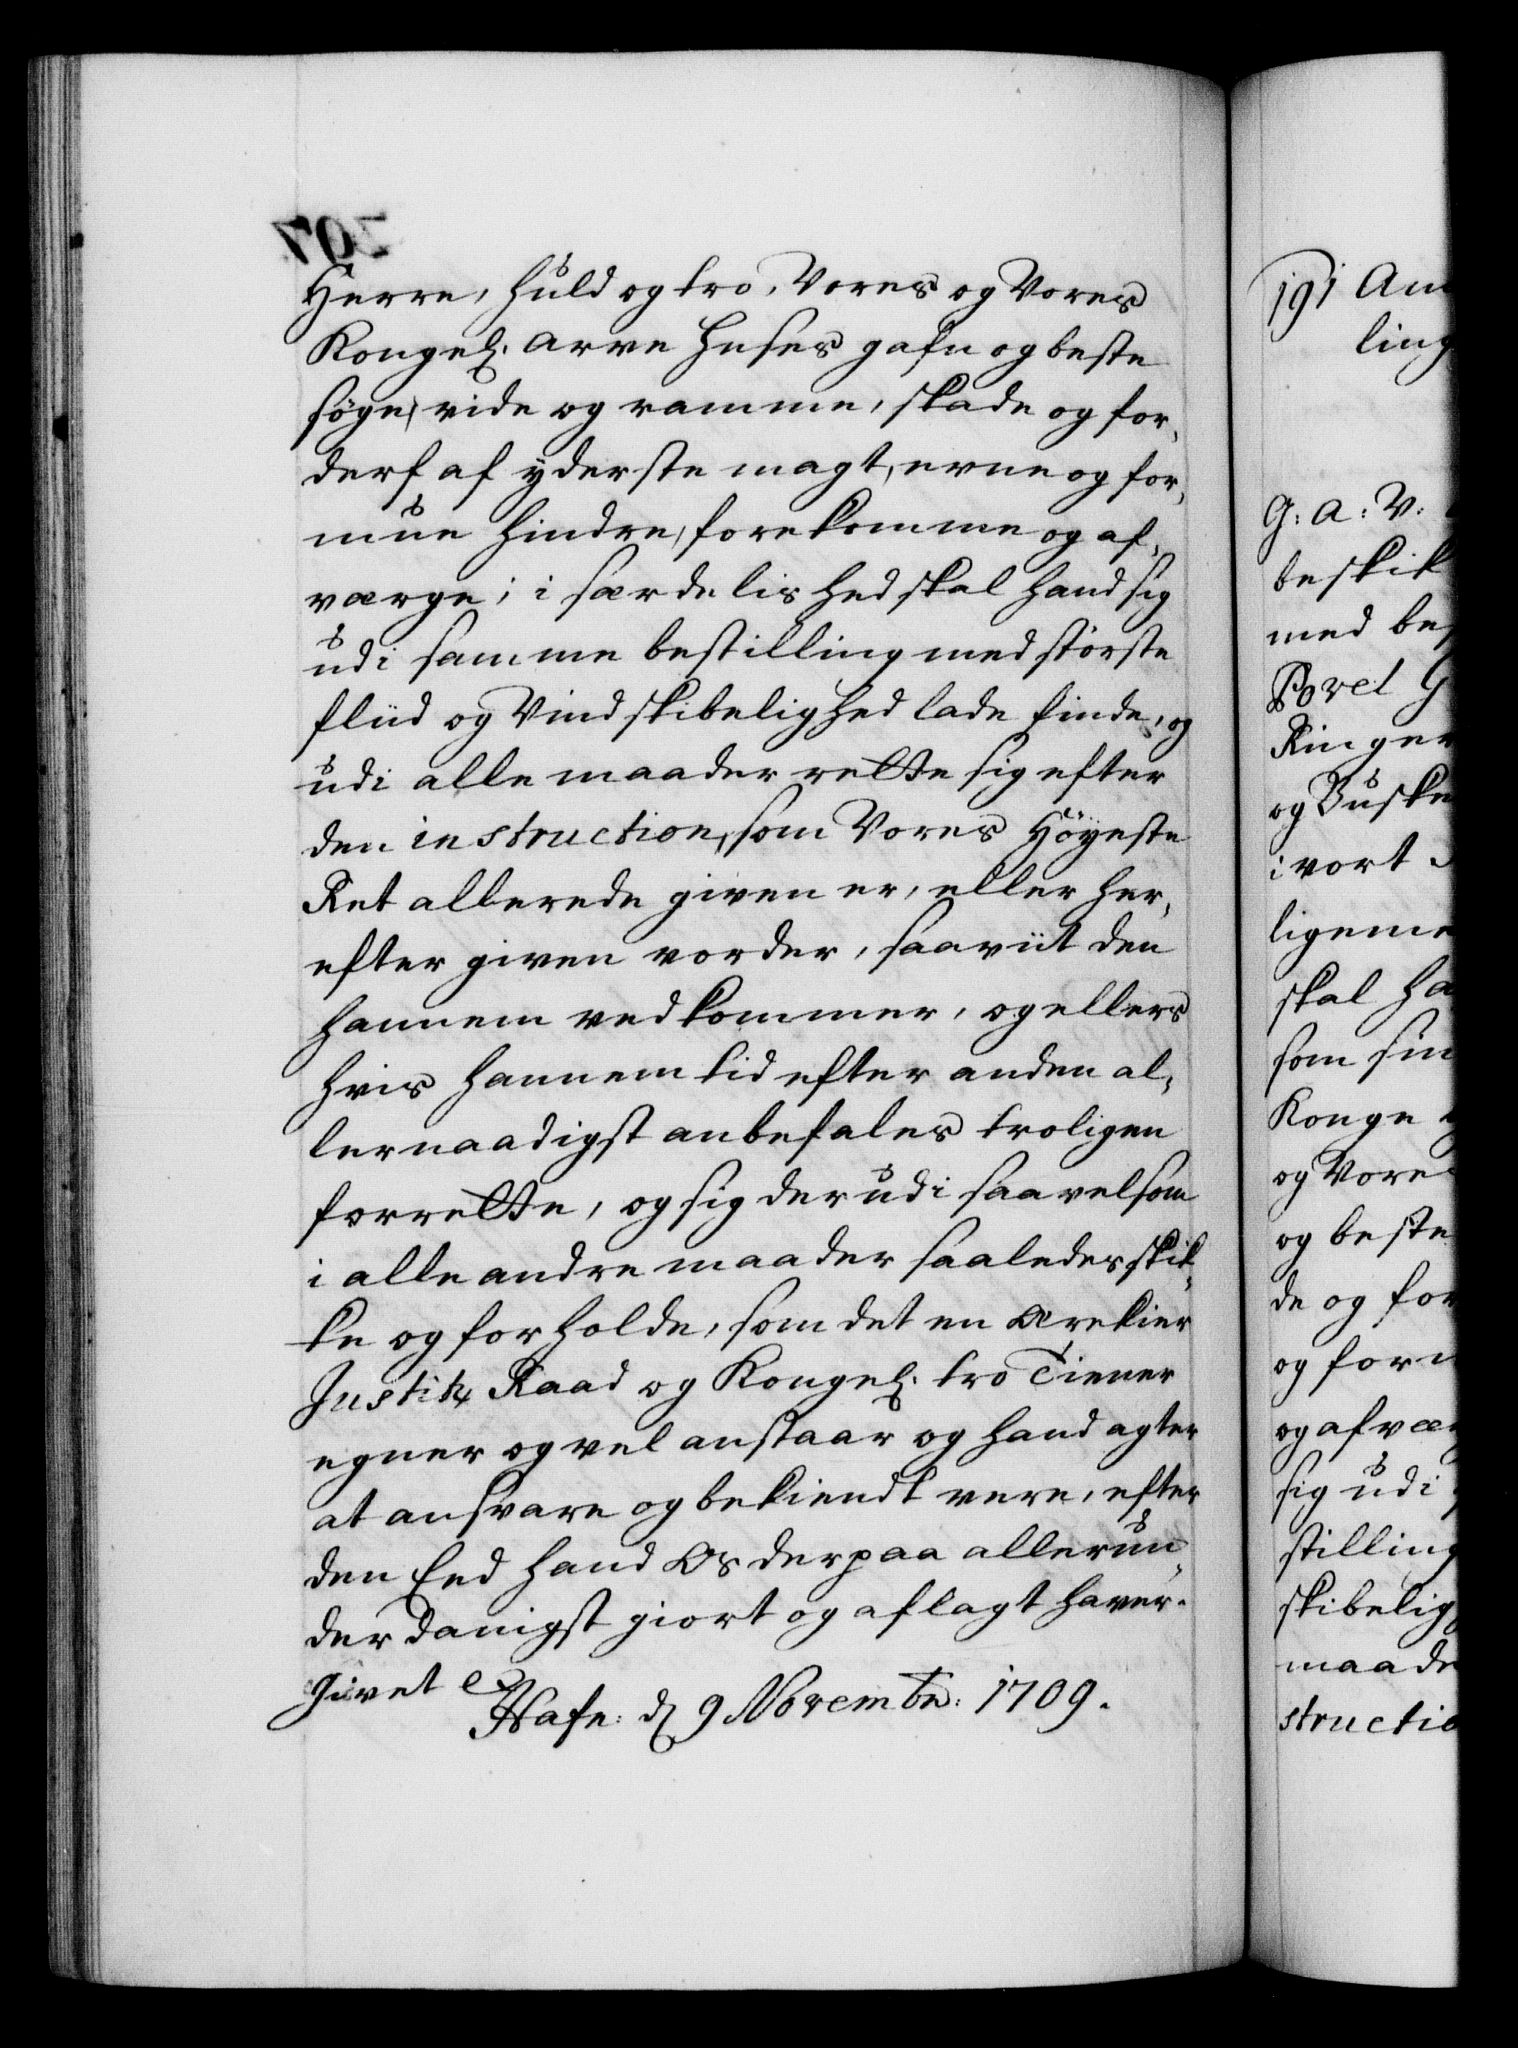 Herre, huld og tro, Vores og Vores
Kongel. arve Huses gafn og beste
søge, vide og ramme, skade og for-
derf af yderste magt, evne og for-
mue hindre, forekomme og af-
værge; i særdelished skal hand sig
udi samme bestilling med störste
fliid og Vindskibelighed lade finde, og
udi alle maader rette sig efter
den instruction, som Vores Höyeste
Ret allerede given er, eller her-
efter given vorder, saaviit den
hannem vedkommer, og ellers
hvis hannem tid efter anden al-
lernaadigst anbefales troligen
forrette, og sig derudi saavelsom
i alle andre maader saaledes skik-
ke og forholde, som det en ærekier
Justitz Raad og Kongel. tro Tiener
egner og vel anstaar og hand agter
at ansvare og bekiendt vere, efter
den Eed hand Os derpaa allerun-
derdanigst giort og aflagt haver.
Givet
Hafn: d. 9 Novembr: 1709.
191 Am
ling
G: A: V:
beskik
med bes
Povel G
Ringer
og Buske
i vort
ligeme
skal ha
som sin
Konge
og Vore
og beste
de og for
og form
og afvær
sig udi
stilling
skibelig
maade
structio